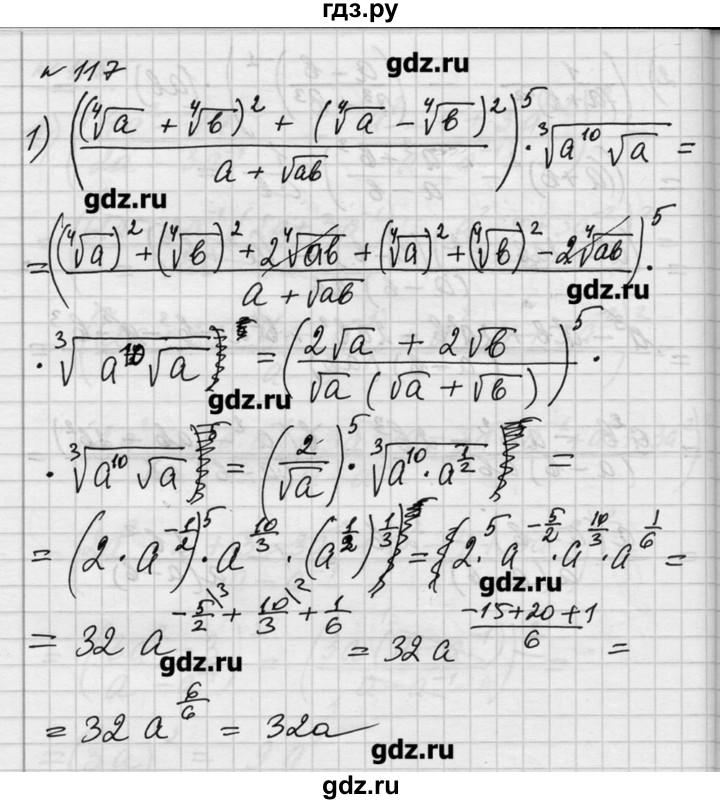 гдз.ру
№ 117
gdz.ru
1) (((⁴√a + ⁴√b)² + (⁴√a − ⁴√b)²)/(a + √ab))⁵ · ³√(a¹⁰√a) =
gdz.ru
= (((⁴√a)² + (⁴√b)² + 2⁴√ab + (⁴√a)² + (⁴√b)² − 2⁴√ab)/(a + √ab))⁵ ·
gdz.ru
· ³√(a¹⁰√a) = ((2√a + 2√b)/(√a (√a + √b)))⁵ ·
gdz.ru
· ³√(a¹⁰√a) = (2/√a)⁵ · ³√(a¹⁰ · a^(1/2)) =
= (2 · a^(-1/2))⁵ · a^(10/3) · (a^(1/2))^(1/3) = 2⁵ · a^(-5/2) · a^(10/3) · a^(1/6) =
gdz.ru
= 32 a^(-5/2\3 + 10/3\2 + 1/6) = 32 a^((-15+20+1)/6) =
gdz.ru
= 32 a^(6/6) = 32a
gdz.ru
gdz.ru